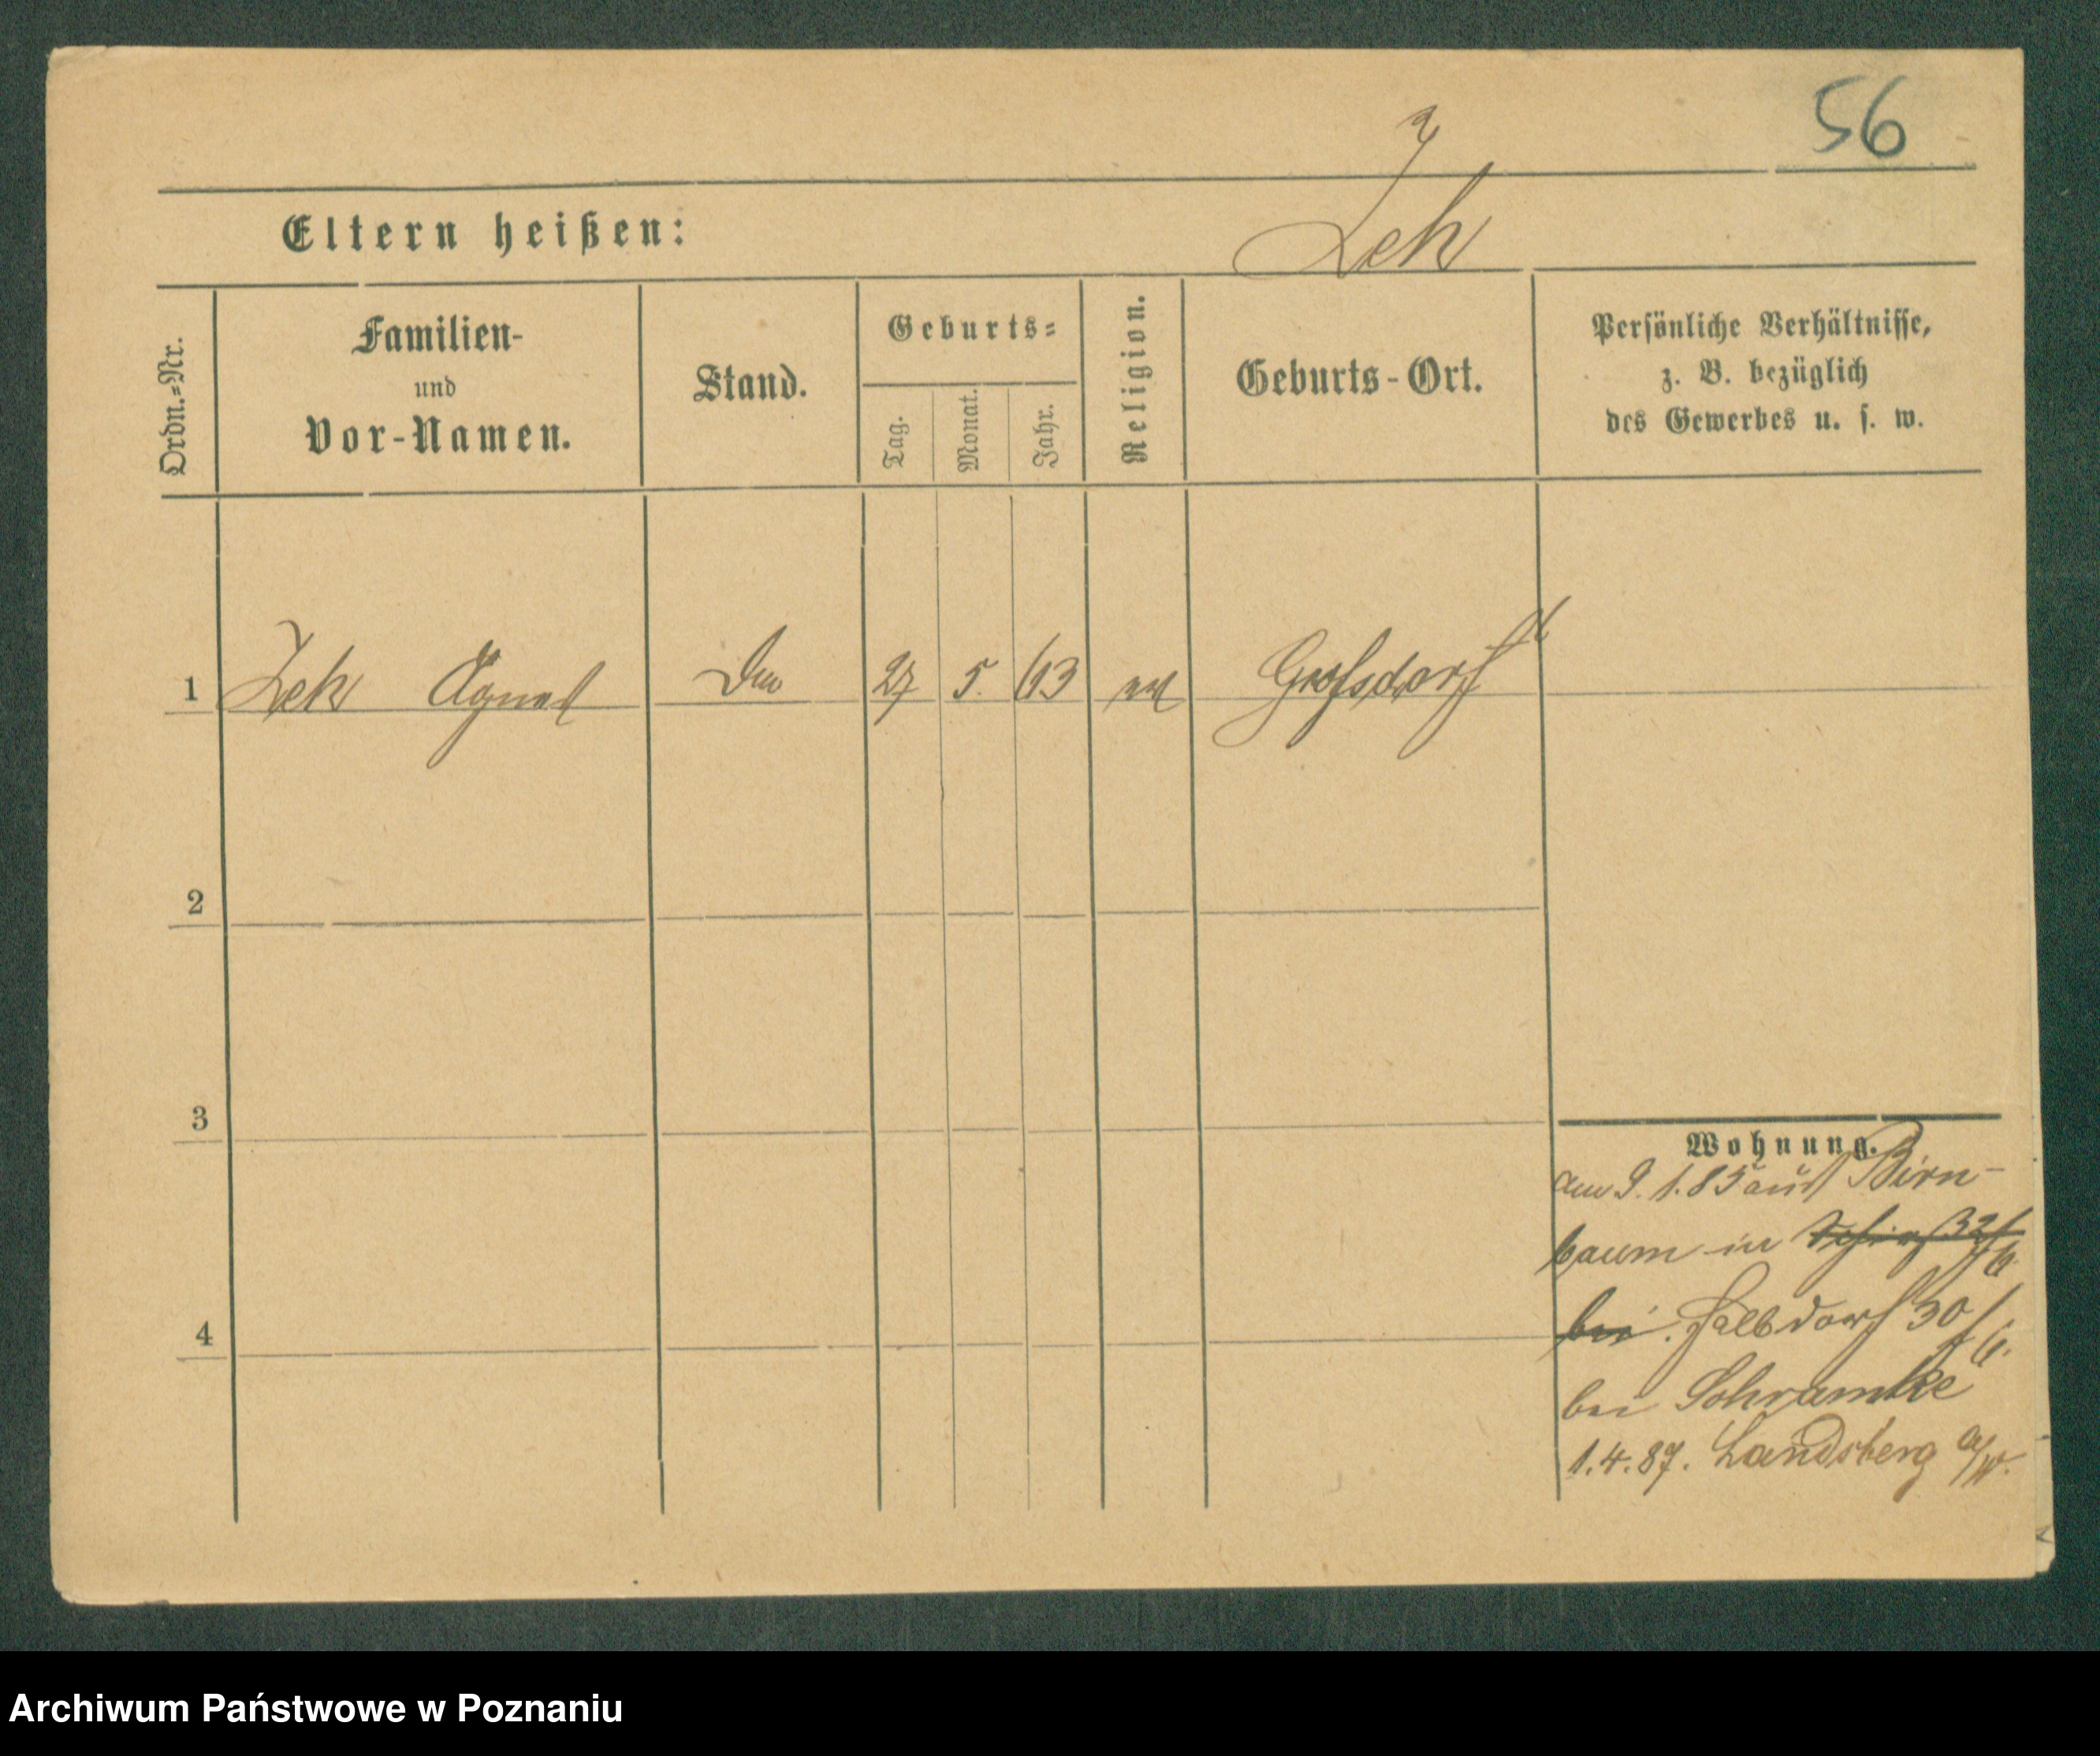 56
Zeh
Eltern heißen:
Ordn.=Nr.
Familien-
und
Vor-Namen.
Stand.
Geburts=
Tag.
Monat.
Jahr.
Religion.
Geburts-Ort.
Persönliche Verhältnisse,
z. B. bezüglich
des Gewerbes u. s. w.
1 Zeh Agnes 27 5. 63 Großdorf
2
3
4
Wohnung.
am 9. 1. 85 aus Birn-
baum in
bei Halbdorf 30
bei Schramke
1.4.87. Landsberg a/W.
Archiwum Państwowe w Poznaniu